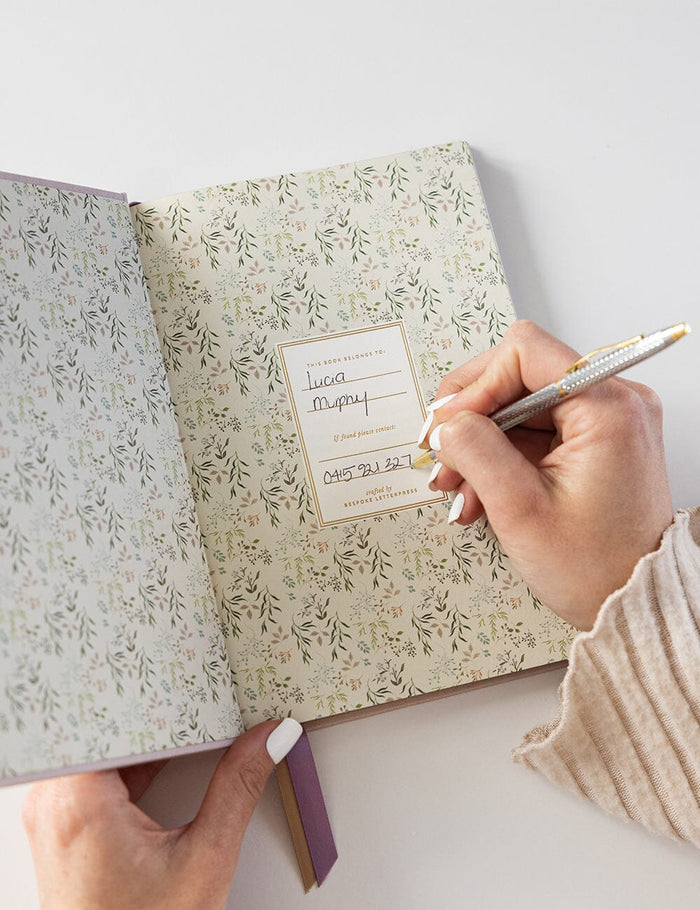 THIS BOOK BELONGS TO:
Lucia
Murphy
If found please contact:
0415 921 327
crafted by
BESPOKE LETTERPRESS